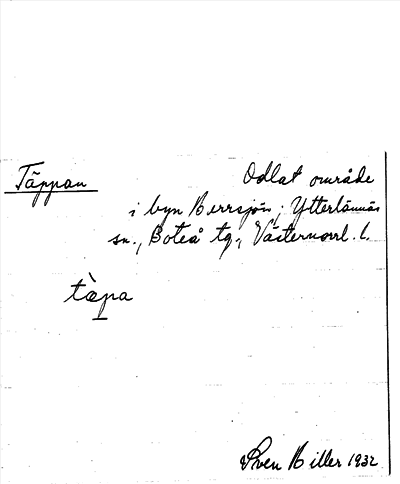 Täppan Odlat område
i byn Berrsjön, Ytterlännäs
sn., Boteå tg., Västernorrl. l.
tæ̀pa
Sven Hiller 1932